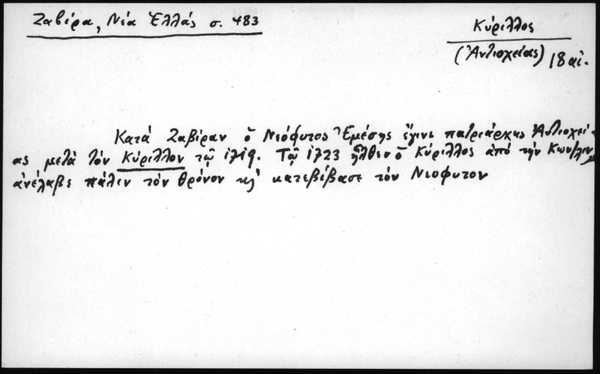 Ζαβίρα, Νέα Ἑλλάς σ. 483
Κύριλλος
(Ἀντιοχείας) 18 αἰ.
Κατά Ζαβίραν ὁ Νεόφυτος Ἐμέσης ἔγινε πατριάρχης Ἀντιοχεί-
ας μετά τόν Κύριλλον τῷ 1719. Τῷ 1723 ἦλθεν ὁ Κύριλλος ἀπό τήν Κων/λιν
ἀνέλαβε πάλιν τόν θρόνον κ' κατεβίβασε τόν Νεόφυτον